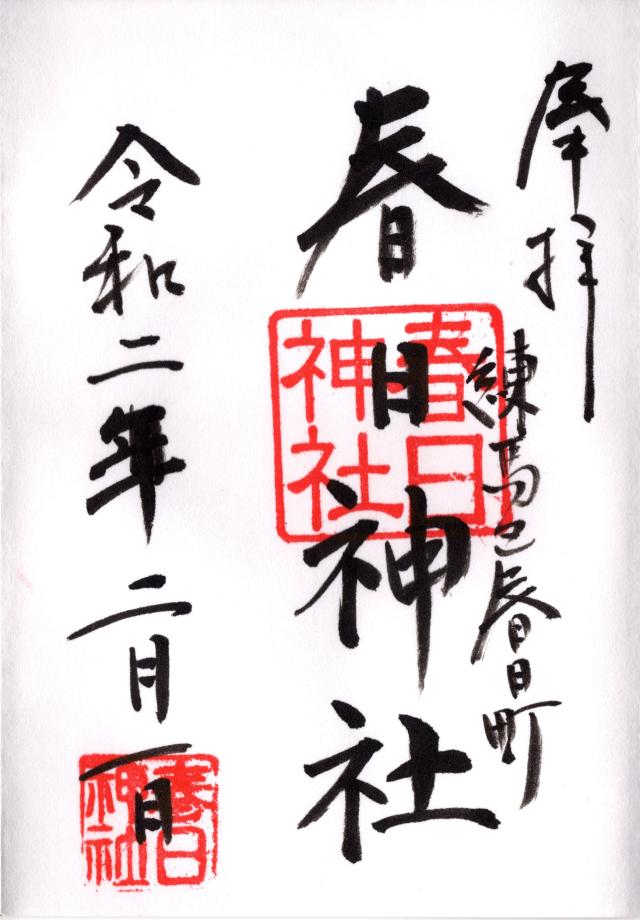 奉拝
練馬区春日町
春日神社
春日神社
令和二年二月一日
春日神社